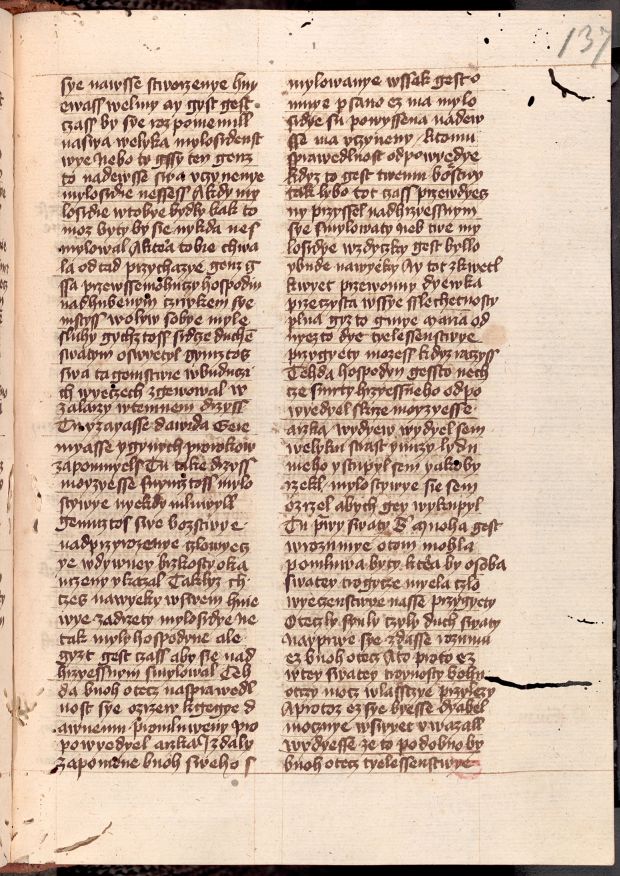 137
sye nawsse stworzenye hny
ewass welmy ay gyst gest
czass by sye rozpomenull
naswa welyka mylosrdenst
wye nebo ty gssy ten genz
to nadewsse swa vczynenye
mylosrdie nessess A kdy my
losrdie wtobye bydly kak to
moz byty by sie nykda nes
mylowal A ktera tobie chwa
la od tad przychazye genz g
ssa przewssemohuczy hospodin
nadhubenym czrwykem sye
mstyss wolyw sobye myle
sluhy gychztoss srdcze duchem
swatym oswyetyl gymztos
swa tagemstwie wbuducz
ch wyeczech zgewowal w
zalarzy wtemnem drzyss
Tu yzayasse dawida Gere
myasse y gynych prorokow
zapomnyels Tu take drzyss
moyzyesse snymztoss mylo
stywye nyekdy mluwyll
gemuztos swe bozstwye
nadprzyrozenye czlowyecz
ye wdywney bizkosty oka
uczeny ykazal Taklyz ch
czes nawyeky wswem hnie
wye zadrzety mylosrdye ne
tak myly hospodyne ale
gyzt gest czass aby sie nad
hrzyessnym smylowal Teh
da buoh otecz nasprawedl
nost sye ozrzew kgegye d
awnemu promluweny pro
powyedyel arzka zdaly
zapomene buoh sweho s
mylowanye wssak gest o
mnye psano ez ma mylo
srdye su powyssena nadew
sse ma vczyneny K tomu
sprawedlnost odpowyedye
kdyz to gest twemu bostwy
tak lybo tot czass przewdyecz
ny przyssel nadhrzyessnym
sye smylowaty neb twe my
losrdye wzdyczky gest byllo
ybude nawyeky Ay tot zkwetl
kwyet przewonny dyewka
przeczysta wssye sslechetnosty
plna gyzto gmye maria od
nyezto dye tyelessenstwye
przygyety mozess kdyz raczyss
Tehda hospodyn gessto nech
cze smrty hrzyessneho odpo
wyedyel skrze moyzyesse
arzka wydyew wydyel sem
welyku strast gmyzy lydu
meho ystupyl sem yakoby
rzekl mylostywye sie sem
ozrzel abych gey wykupyl
Tu prwy swaty mnoha gest
wrozumye otom mohla
promluwa byty ktera by osoba
swatey trogycze myela czlo
wyeczenstwye nasse przygyety
Otecz ly syn ly czyly duch swaty
nayprwe sye zdasse rozumu
ez buoh otecz Ato proto ez
wtey swatey troynosty bohu
otczy mocz wlasstye przylezy
A protoz ez sye bresse dyabel
moczyne wswyet vwazall
wydyesse ze to podobno by
buoh otecz tyelessenstwye